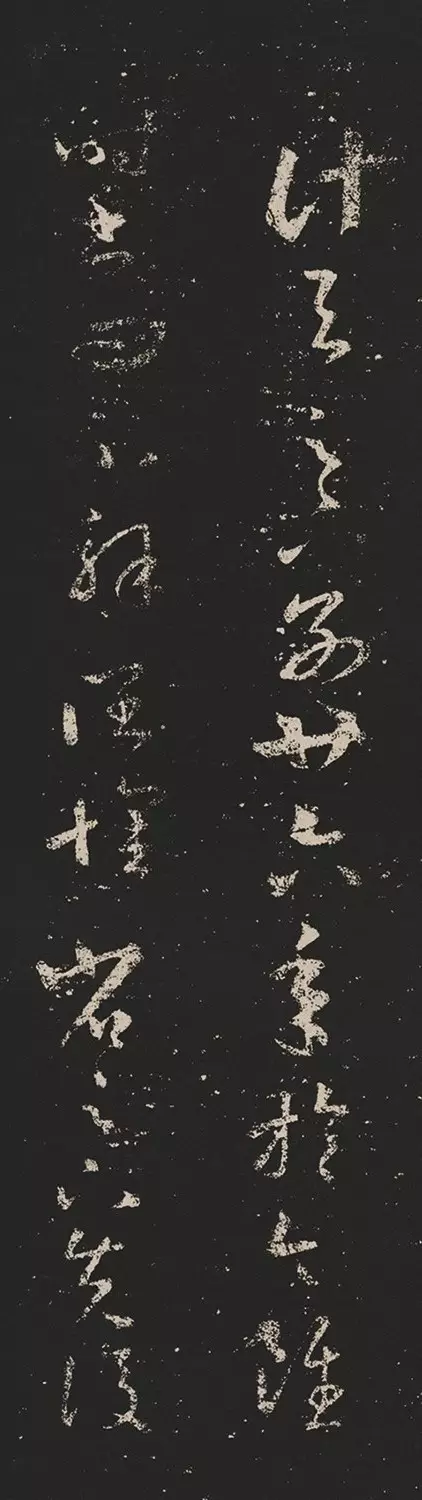 計與足下別廿六年於今雖
時書問不解闊懷省足下先後